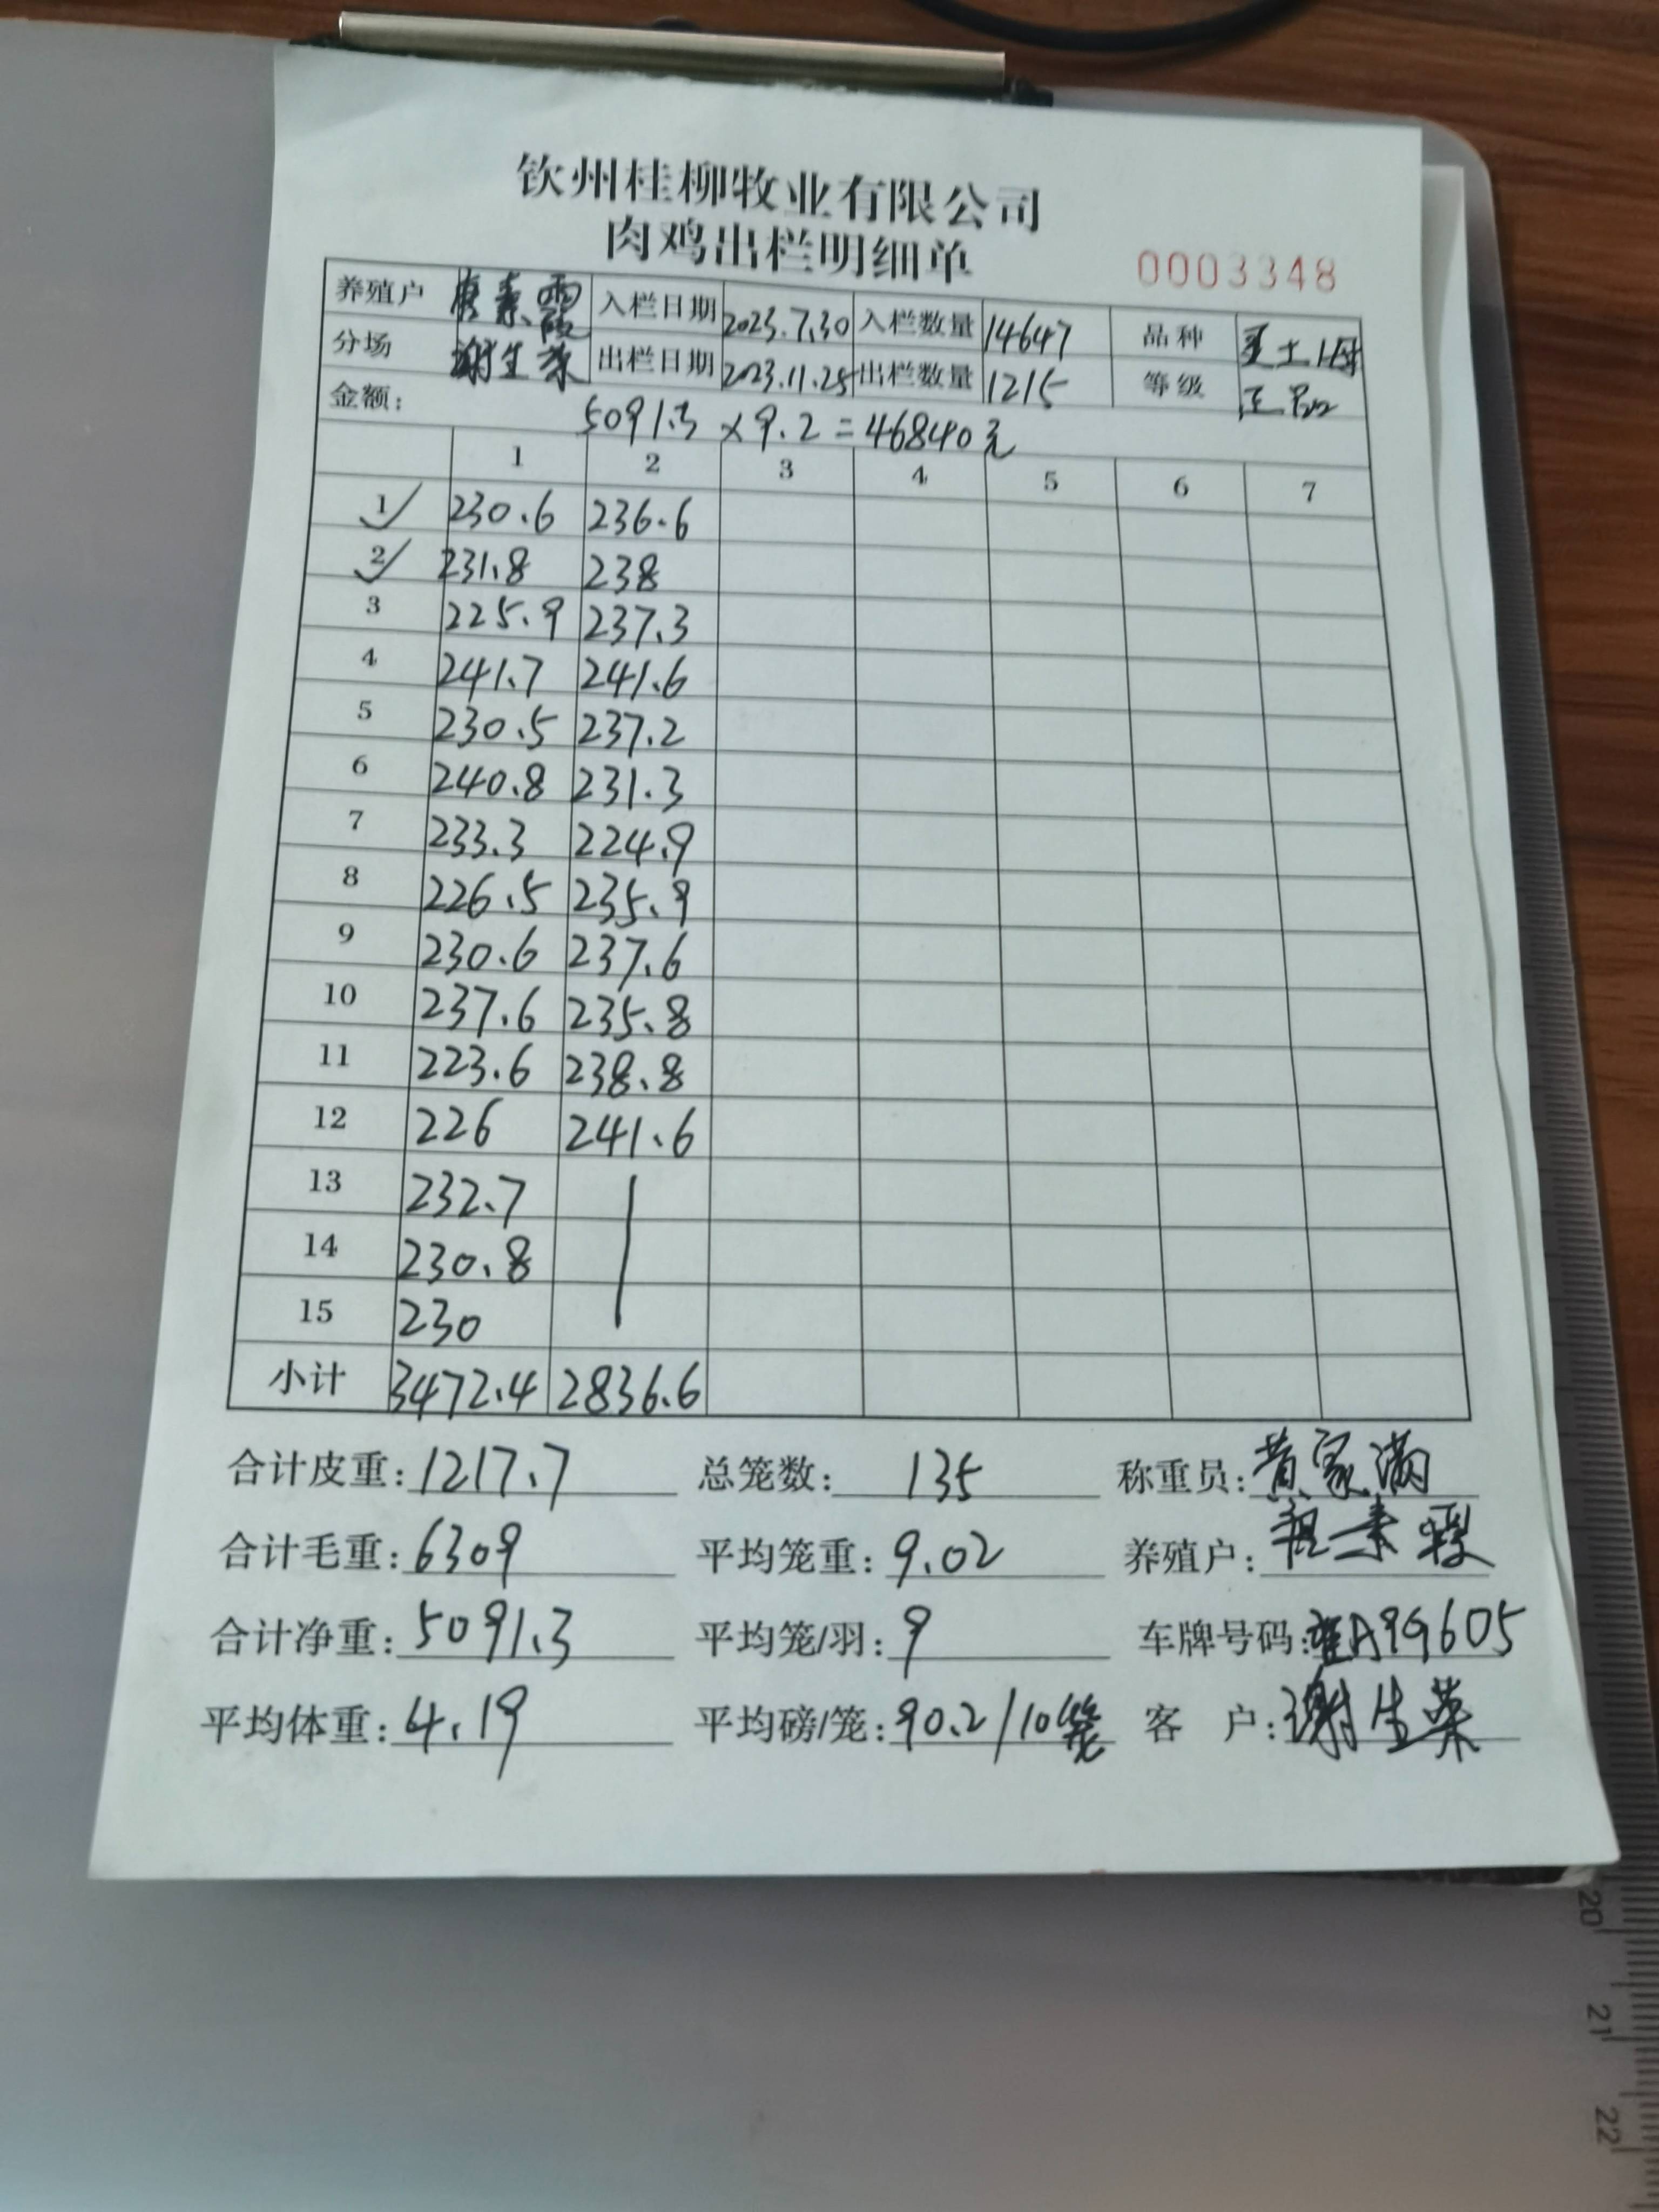 钦州桂柳牧业有限公司
肉鸡出栏明细单
0003348
养殖户 素霞 入栏日期 2023.7.30 入栏数量 14647 品种 土1母
分场 谢生荣 出栏日期 2023.11.25 出栏数量 1215 等级 正品
金额: 5091.3 x 9.2 = 46840元
1 2 3 4 5 6 7
1 230.6 236.6
2 231.8 238
3 225.9 237.3
4 241.7 241.6
5 230.5 237.2
6 240.8 231.3
7 233.3 224.9
8 226.5 235.9
9 230.6 237.6
10 237.6 235.8
11 223.6 238.8
12 226 241.6
13 232.7
14 230.8
15 230
小计 3472.4 2836.6
合计皮重: 1217.7 总笼数: 135 称重员: 黄家满
合计毛重: 6309 平均笼重: 9.02 养殖户: 素
合计净重: 5091.3 平均笼/羽: 9 车牌号码: A99605
平均体重: 4.19 平均磅/笼: 90.2/10笼 客 户: 谢生荣
20
21
22